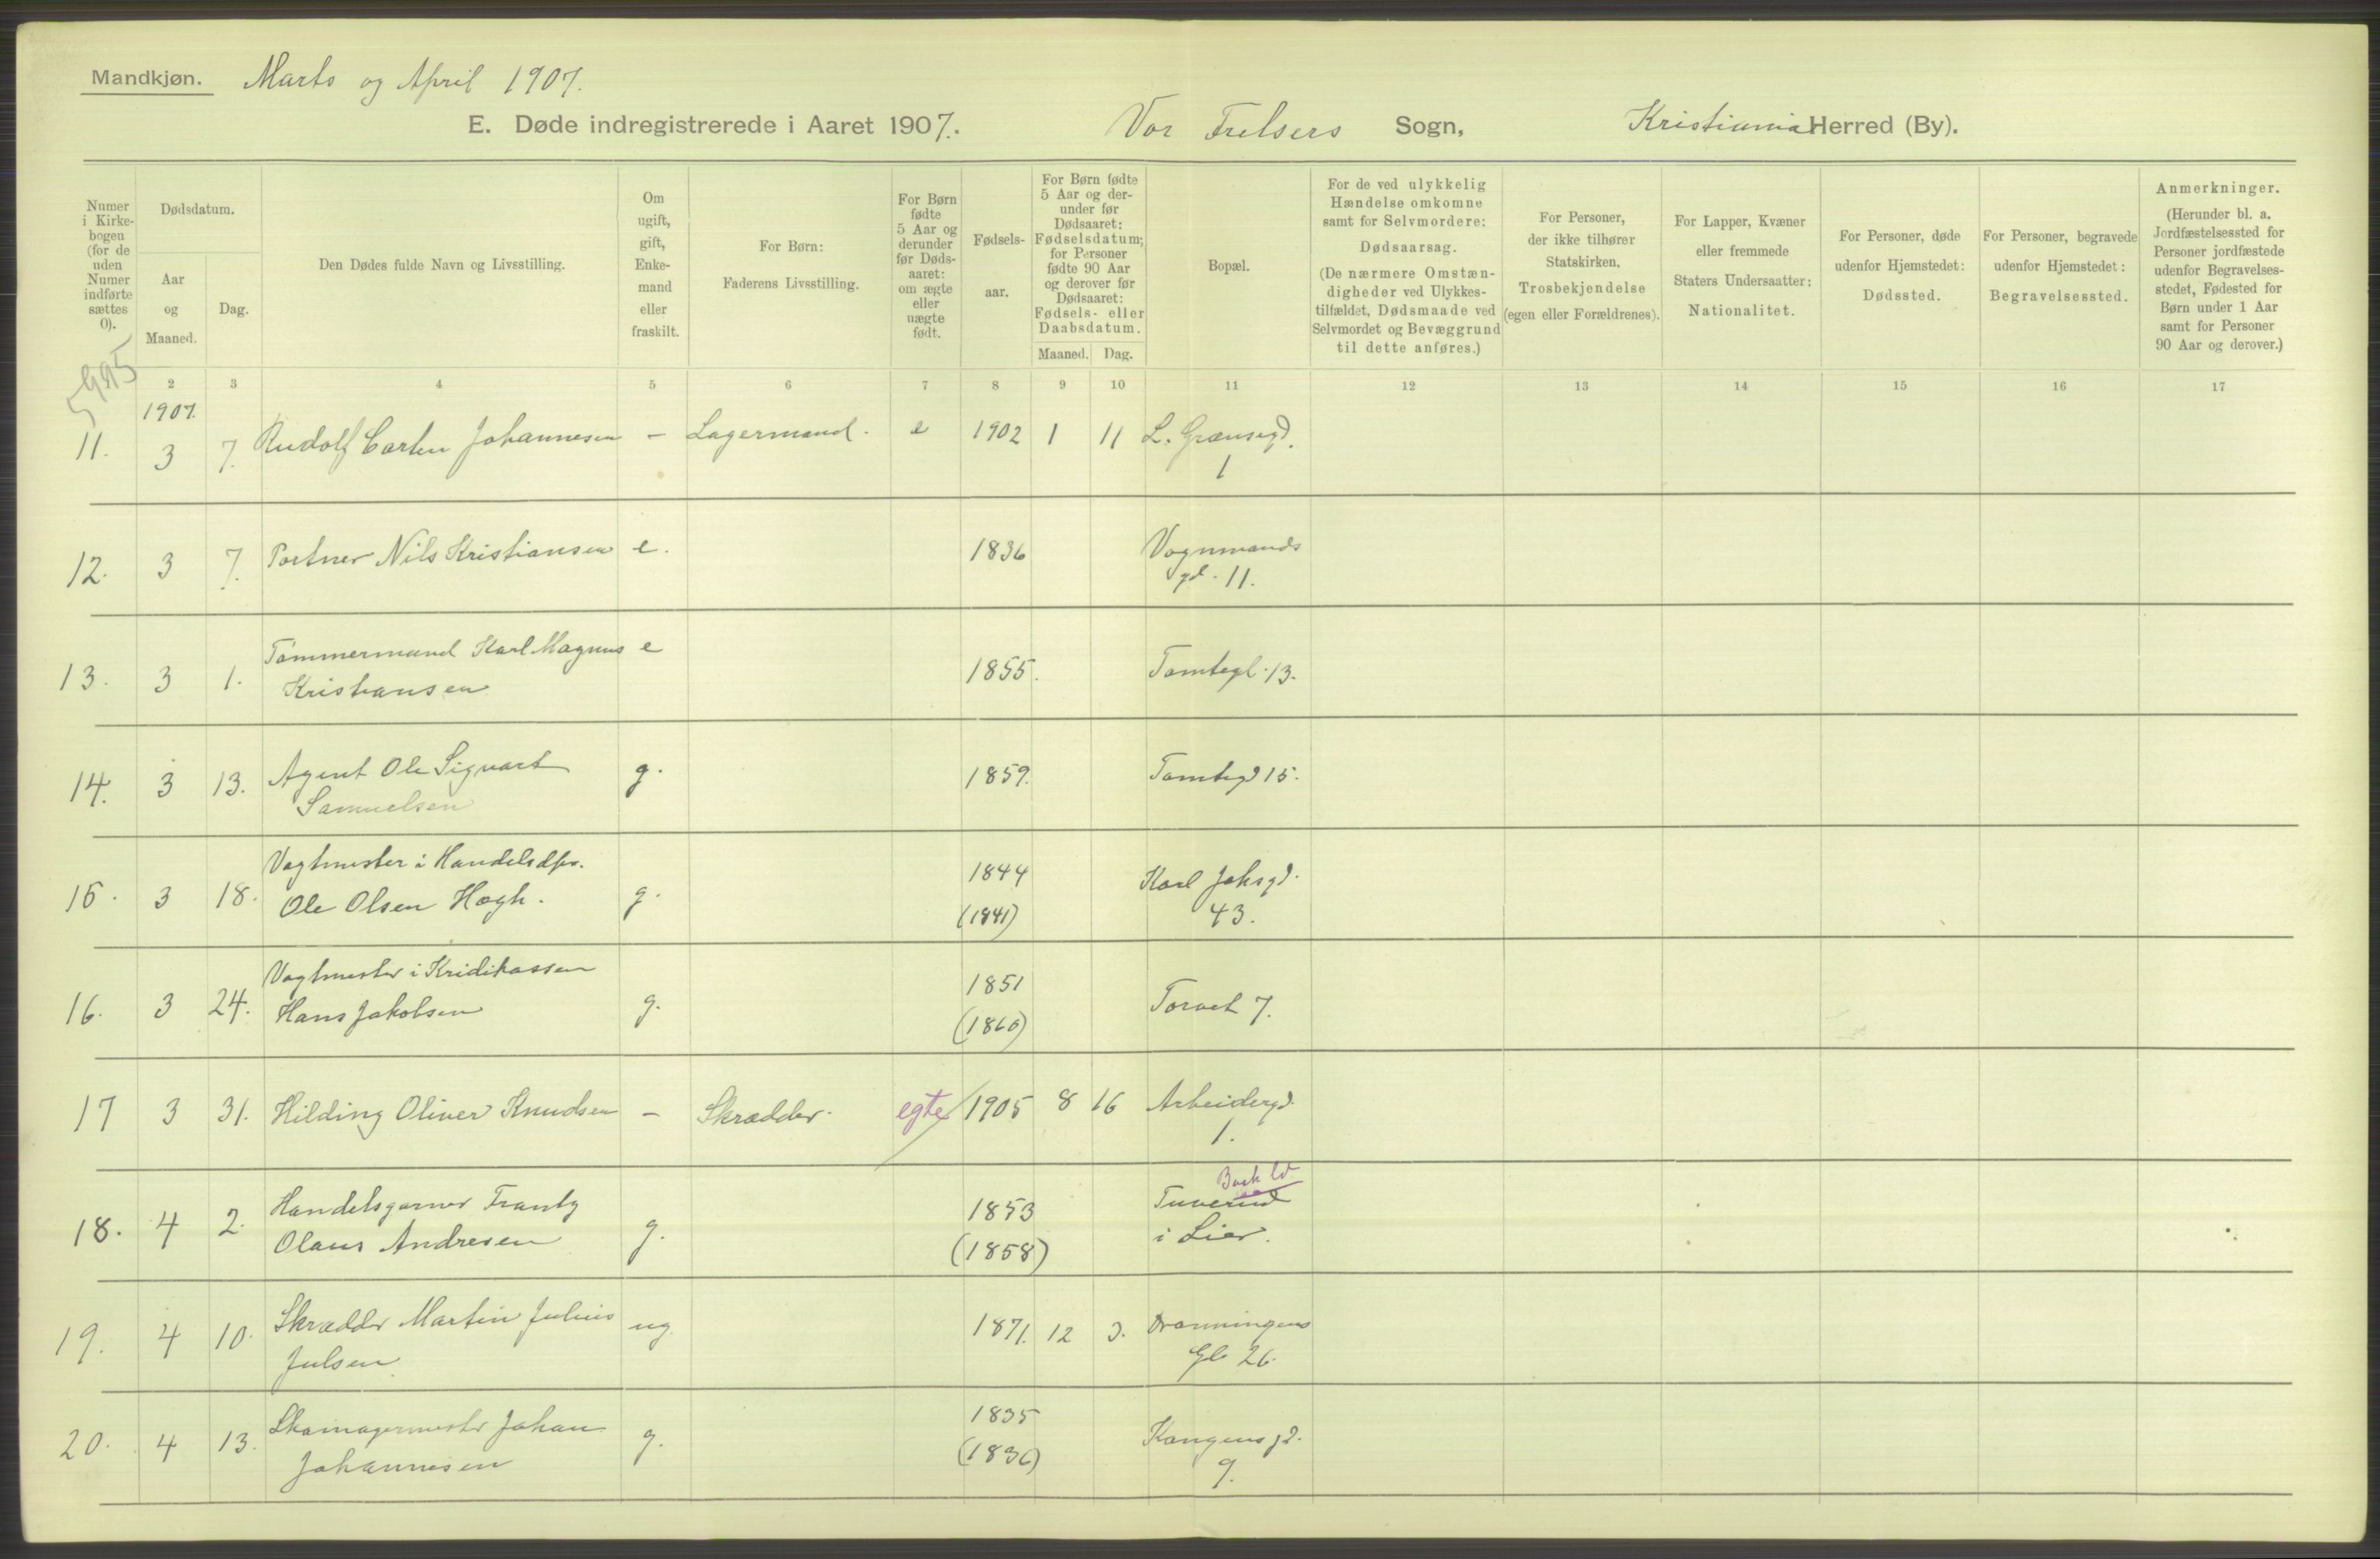 Mandkjøn. Marts og April 1907.
E. Døde indregistrerede i Aaret 1907. Vor Frelsers Sogn, Kristiania Herred (By).
Numer i Kirkebogen (for de uden Numer indførte sættes 0).
Dødsdatum.
Aar og Maaned.
Dag.
Den Dødes fulde Navn og Livsstilling.
Om ugift, gift, Enkemand eller fraskilt.
For Børn: Faderens Livsstilling.
For Børn fødte 5 Aar og derunder før Dødsaaret: om ægte eller uægte født.
Fødselsaar.
For Børn fødte 5 Aar og derunder før Dødsaaret: Fødselsdatum; for Personer fødte 90 Aar og derover før Dødsaaret: Fødsels- eller Daabsdatum.
Maaned. Dag.
Bopæl.
For de ved ulykkelig Hændelse omkomne samt for Selvmordere: Dødsaarsag. (De nærmere Omstændigheder ved Ulykkestilfældet, Dødsmaade ved Selvmordet og Bevæggrund til dette anføres.)
For Personer, der ikke tilhører Statskirken, Trosbekjendelse (egen eller Forældrenes).
For Lapper, Kvæner eller fremmede Staters Undersaatter: Nationalitet.
For Personer, døde udenfor Hjemstedet: Dødssted.
For Personer, begravede udenfor Hjemstedet: Begravelsessted.
Anmerkninger. (Herunder bl. a. Jordfæstelsessted for Personer jordfæstede udenfor Begravelsesstedet, Fødested for Børn under 1 Aar samt for Personer 90 Aar og derover.)
2 3 4 5 6 7 8 9 10 11 12 13 14 15 16 17
1907.
11. 3 7. Rudolf Carlen Johannesen – Lagermand. e 1902 1 11 L. Grænsegd.
1
12. 3 7. Portner Nils Kristiansen e. 1836 Vognmands
gd. 11.
13. 3 1. Tømmermand Karl Magnus e 1855. Tomtegt. 13.
Kristiansen
14. 3 13. Agent Ole Sigvart g. 1859. Tomtegd 15.
Samuelsen
15. 3 18. Vagtmester i Handelsdpr. 1844 Karl Johsgd.
Ole Olsen Høgh. g. (1841) 43.
16. 3 24. Vagtmester i Kreditkassen 1851
Hans Jakobsen g. (1860) Torvet 7.
17 3 31. Hilding Oliver Knudsen – Skrædder. egte 1905 8 16 Arbeidergd.
1.
18. 4 2. Handelsgarner Frantz 1853
Olaus Andresen g. (1858) i Lier.
19. 4 10. Skrædder Martin Julius ug 1871. 12 3. Dronningens
Julsen Gt. 26.
20. 4 13. Skomagermester Johan g. 1835 Kongens gd.
Johannesen (1836) 9.